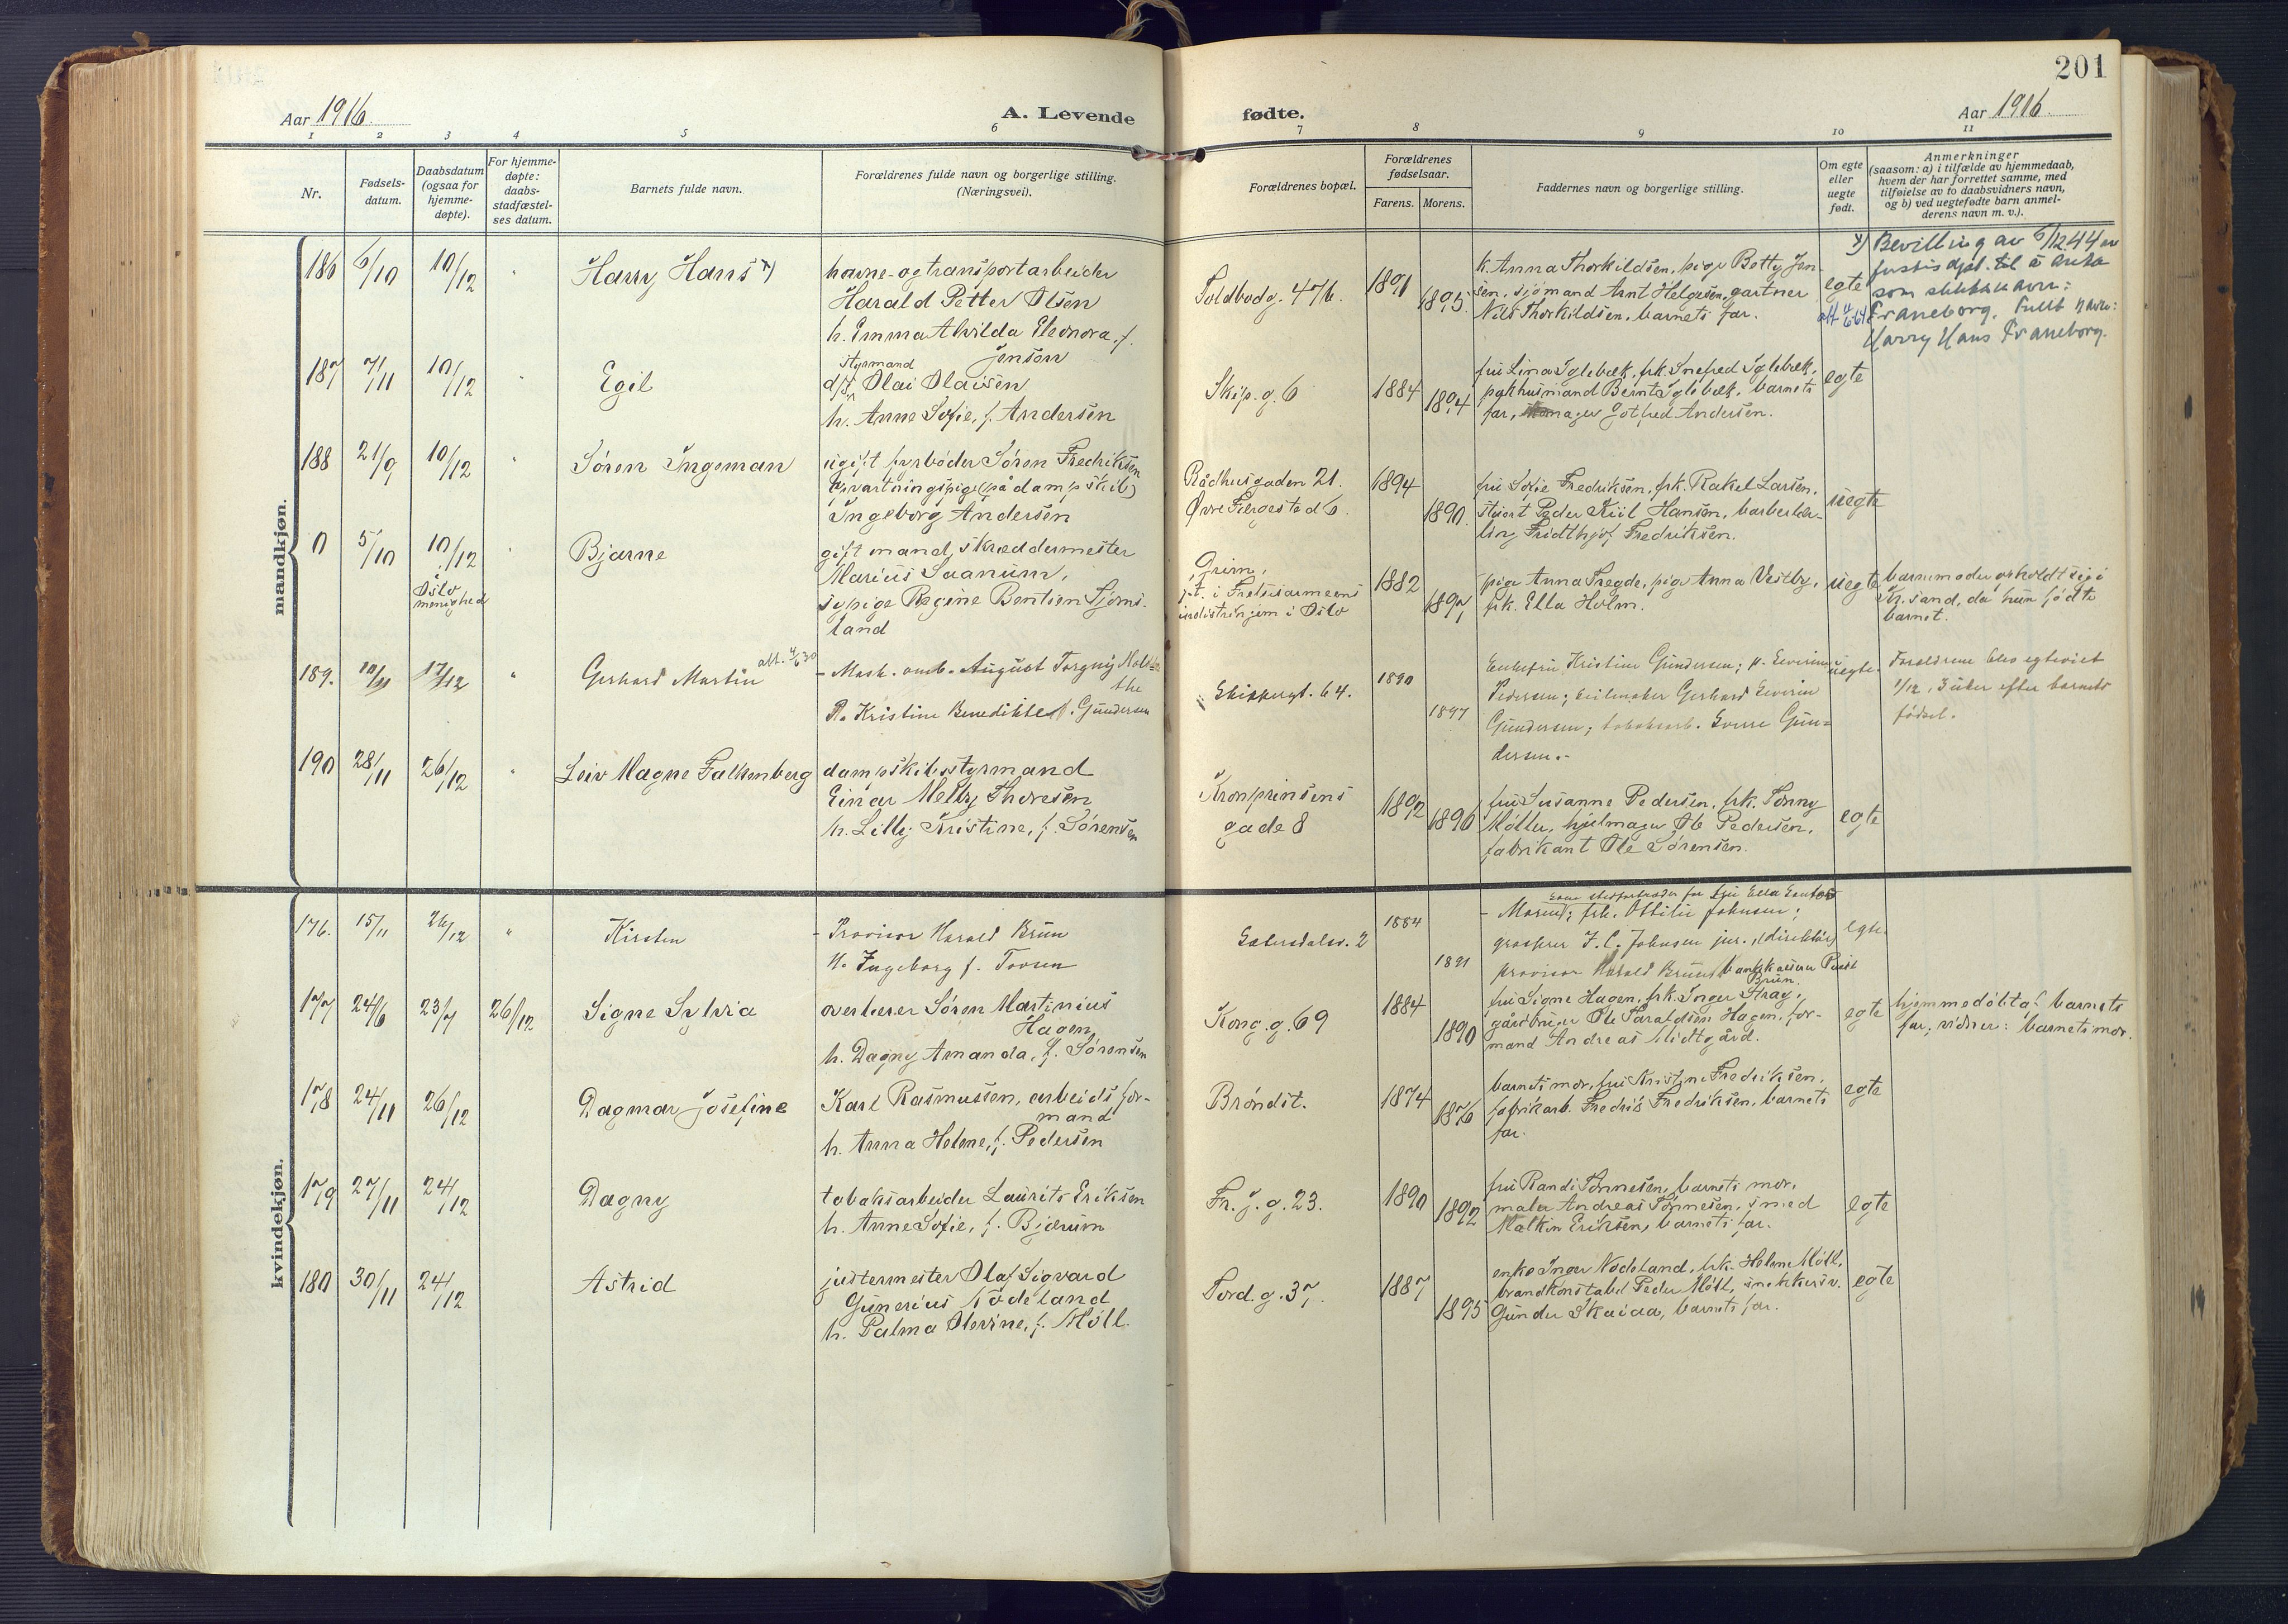 201
Aar 1916.
A. Levende fødte.
Aar 1916.
1 2 3 4 5 6 7 8 9 10 11
Nr.
Fødsels-
datum.
Daabsdatum
(ogsaa for
hjemme-
døpte).
For hjemme-
døpte:
daabs-
stadfæstel-
ses datum.
Barnets fulde navn.
Forældrenes fulde navn og borgerlige stilling.
(Næringsvei).
Forældrenes bopæl.
Forældrenes
fødselsaar.
Farens. Morens.
Faddernes navn og borgerlige stilling.
Om egte
eller
uegte
født.
Anmerkninger
(saasom: a) i tilfælde av hjemmedaab,
hvem der har forrettet samme, med
tilføielse av to daabsvidners navn,
og b) ved uegtefødte barn anmel-
derens navn m. v.).
mandkjøn.
186 6/10 10/12 " Harry Hans x)
havne- og transportarbeider
Harald Petter Olsen
h. Emma Alvilda Eleonora, f.
Jensen
Toldbodg. 47b. 1891 1895.
k. Anna Thorkildsen, pige Betty Jen-
sen, sjømand Arnt Helgesen, gartner
Nils Thorkildsen, barnets far.
egte
x) Bevilling av 6/12 44 av
justisdpt. til å anta
som slektsnavn:
Traneborg. Fullt navn:
Harry Hans Traneborg.
187 7/11 10/12 " Egil
styrmand
d/s Olai Olaisen
h. Anne Sofie, f. Andersen
Skip. g. 6 1884 1894
fru Lina Iglebæk, frk. Snefred Iglebæk,
pakhusmand Bernt Iglebæk, barnets
far, Gotfred Andersen.
egte
188 21/9 10/12 " Sören Ingeman
ugift fyrbøder Sören Fredriksen
opvartningspige (på dampskib)
Ingeborg Andersen
Rådhusgaden 21.
Øvre Fiergested 6.
1894 1890.
fru Sofie Fredriksen, frk. Rakel Larsen,
stuert Peder Kiil Hansen, barberlær-
ling Fridthjof Fredriksen.
uegte
0 5/10 10/12 " Bjarne
i
Oslo
menighed
gift mand, skræddermester
Marius Saanum,
sypige Regine Bentsen Tjoms-
land
Grim,
p.t. i Frelsesarmeens
industrihjem i Oslo
1882 1897
pige Anna Fregde, pige Anna Vestby,
frk. Ella Holm.
uegte
barnemoder opholdt sig i
Kr.sand, da hun fødte
barnet.
189. 10/11 17/12 " Gerhard Martin
att. 4/6 30
- Mask. amb. August Torgny Molt-
the
H. Kristine Benedikte f. Gundersen
Skippergt. 64. 1890 1897
Enkefru Kristine Gundersen; p. Severine
Pedersen; seilmaker Gerhard Severin
Gundersen; tobaksarb. Sverre Gun=
dersen.-
uegte.
Forældrene blev egteviet
1/12, 3 uker efter barnets
fødsel.
190 28/11 26/12 " Leiv Magne Falkenberg
dampskibsstyrmand
Einar Melby Thoresen
h. Lilly Kristine, f. Sørensen
Kronprinsens
gade 8
1892 1896
fru Susanne Pedersen, frk. Tonny
Møller, hjulmager Ole Pedersen,
fabrikant Ole Sørensen.
egte
kvindekjøn.
176. 15/11 26/12 " Kirsten
- Provisor Harald Brun
H. Ingeborg f. Tovsen
Setersdalsv. 2 1884 1891
som stedfortræder for fru Ella
- frk. Ottilie Johnsen;
grosserer J. C. Johnsen jur., (direktør)
provisor Harald Brun, bankkasserer
Brun.
egte.
177 24/6 23/7 26/12 Signe Sylvia
overlærer Søren Martinius
Hagen
h. Dagny Amanda, f. Sørensen
Kong. g. 69 1884 1890
fru Signe Hagen, frk. Inger Stray,
gårdbruger Ole Taraldsen Hagen, for-
mand Andreas Midtgård.
egte
hjemmedøbt af barnets
far; vidner: barnets mor.
178 24/11 26/12 Dagmar Josefine
Karl Rasmussen, arbeidsfor-
mand
h. Anna Helene, f. Pedersen
Brøndst. 1874 1876
barnets mor, fru Kristine Fredriksen,
fabrikarb. Fredrik Fredriksen, barnets
far.
egte
179 27/11 24/12 Dagny
tobaksarbeider Laurits Eriksen
h. Anne Sofie, f. Bjørum
Fr. g. g. 23. 1890 1892
fru Randi Tønnesen, barnets mor,
maler Andreas Tønnesen, smed
Malkin Eriksen, barnets far.
egte
180 30/11 24/12 Astrid
justermester Olaf Sigvard
Gunerius Nodeland
h. Palma Olevine, f. Møll.
Tord. g. 37. 1887 1895
enke Inger Nodeland, frk. Helene Møll,
brandkonstabel Peder Møll, snekkersv.
Gunder Skaiaa, barnets far.
egte